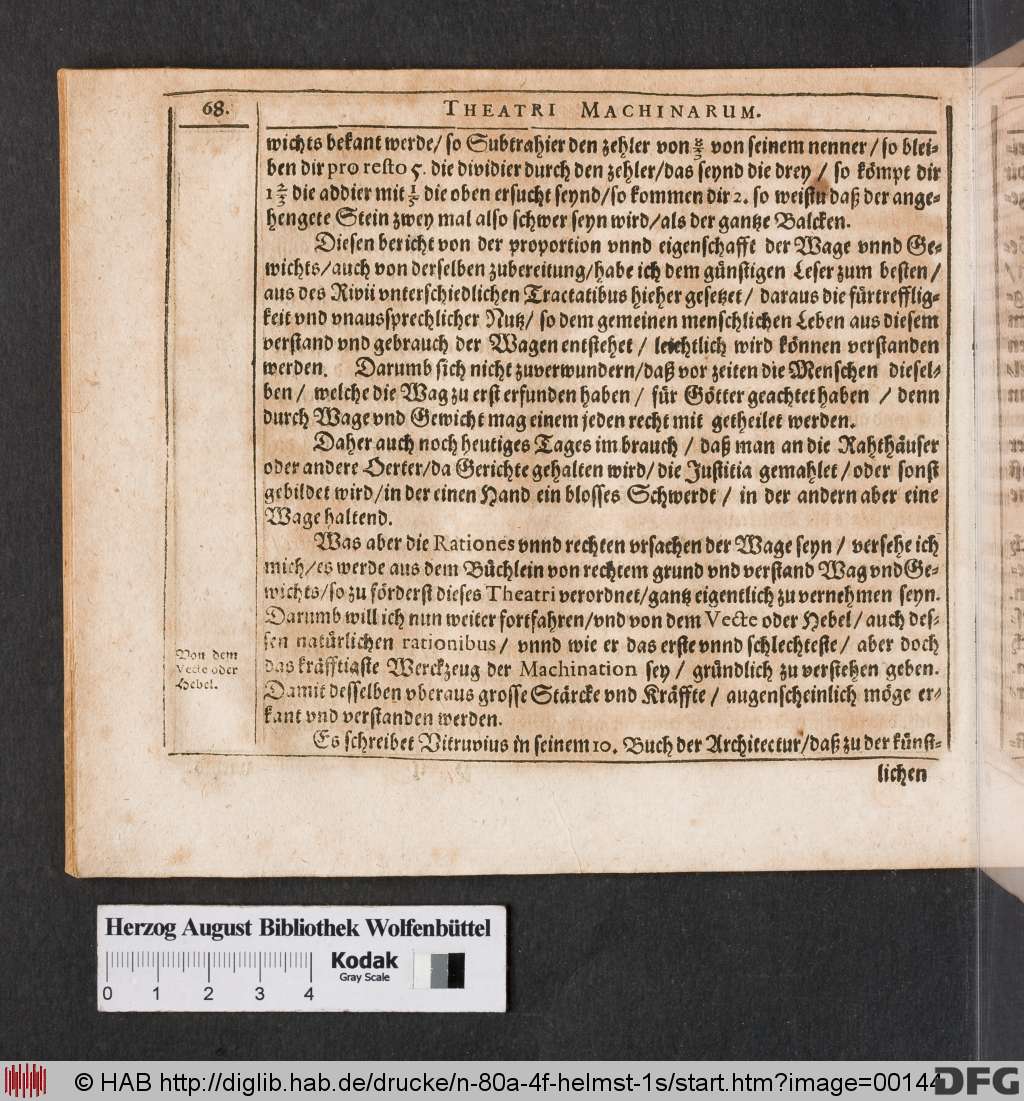 68.
THEATRI MACHINARUM.
wichts bekant werde/ so Subtrahier den zehler von 8/3 von seinem nenner/ so blei-
ben dir pro resto 5. die dividier durch den zehler/ das seynd die drey / so kömpt dir
1 2/3 die addier mit 1/3 die oben ersucht seynd/ so kommen dir 2. so weistu daß der ange-
hengete Stein zwey mal also schwer seyn wird/ als der gantze Balcken.
Diesen bericht von der proportion vnnd eigenschafft der Wage vnnd Ge-
wichts/ auch von derselben zubereitung/ habe ich dem günstigen Leser zum besten/
aus des Rivii vnterschiedlichen Tractatibus hieher gesetzet/ daraus die fürtrefflig-
keit vnd vnaussprechlicher Nutz/ so dem gemeinen menschlichen Leben aus diesem
verstand vnd gebrauch der Wagen entstehet / leichtlich wird können verstanden
werden. Darumb sich nicht zuverwundern/ daß vor zeiten die Menschen diesel-
ben/ welche die Wag zu erst erfunden haben/ für Götter geachtet haben / denn
durch Wage vnd Gewicht mag einem jeden recht mit getheilet werden.
Daher auch noch heutiges Tages im brauch / daß man an die Rahthäuser
oder andere Oerter/ da Gerichte gehalten wird/ die Justitia gemahlet/ oder sonst
gebildet wird/ in der einen Hand ein blosses Schwerdt / in der andern aber eine
Wage haltend.
Was aber die Rationes vnnd rechten vrsachen der Wage seyn/ versehe ich
mich/ es werde aus dem Büchlein von rechtem grund vnd verstand Wag vnd Ge-
wichts/ so zu förderst dieses Theatri verordnet/ gantz eigentlich zu vernehmen seyn.
Darumb will ich nun weiter fortfahren/ vnd von dem Vecte oder Hebel/ auch des-
sen natürlichen rationibus/ vnnd wie er das erste vnnd schlechteste/ aber doch
das kräfftigste Werckzeug der Machination sey/ gründlich zu verstehen geben.
Damit desselben vberaus grosse Stärcke vnd Kräffte/ augenscheinlich möge er-
kant vnd verstanden werden.
Von dem
Vecte oder
Hebel.
Es schreibet Vitruvius in seinem 10. Buch der Architectur/ daß zu der künst-
lichen
Herzog August Bibliothek Wolfenbüttel
Kodak
Gray Scale
0 1 2 3 4
© HAB http://diglib.hab.de/drucke/n-80a-4f-helmst-1s/start.htm?image=00144
DFG